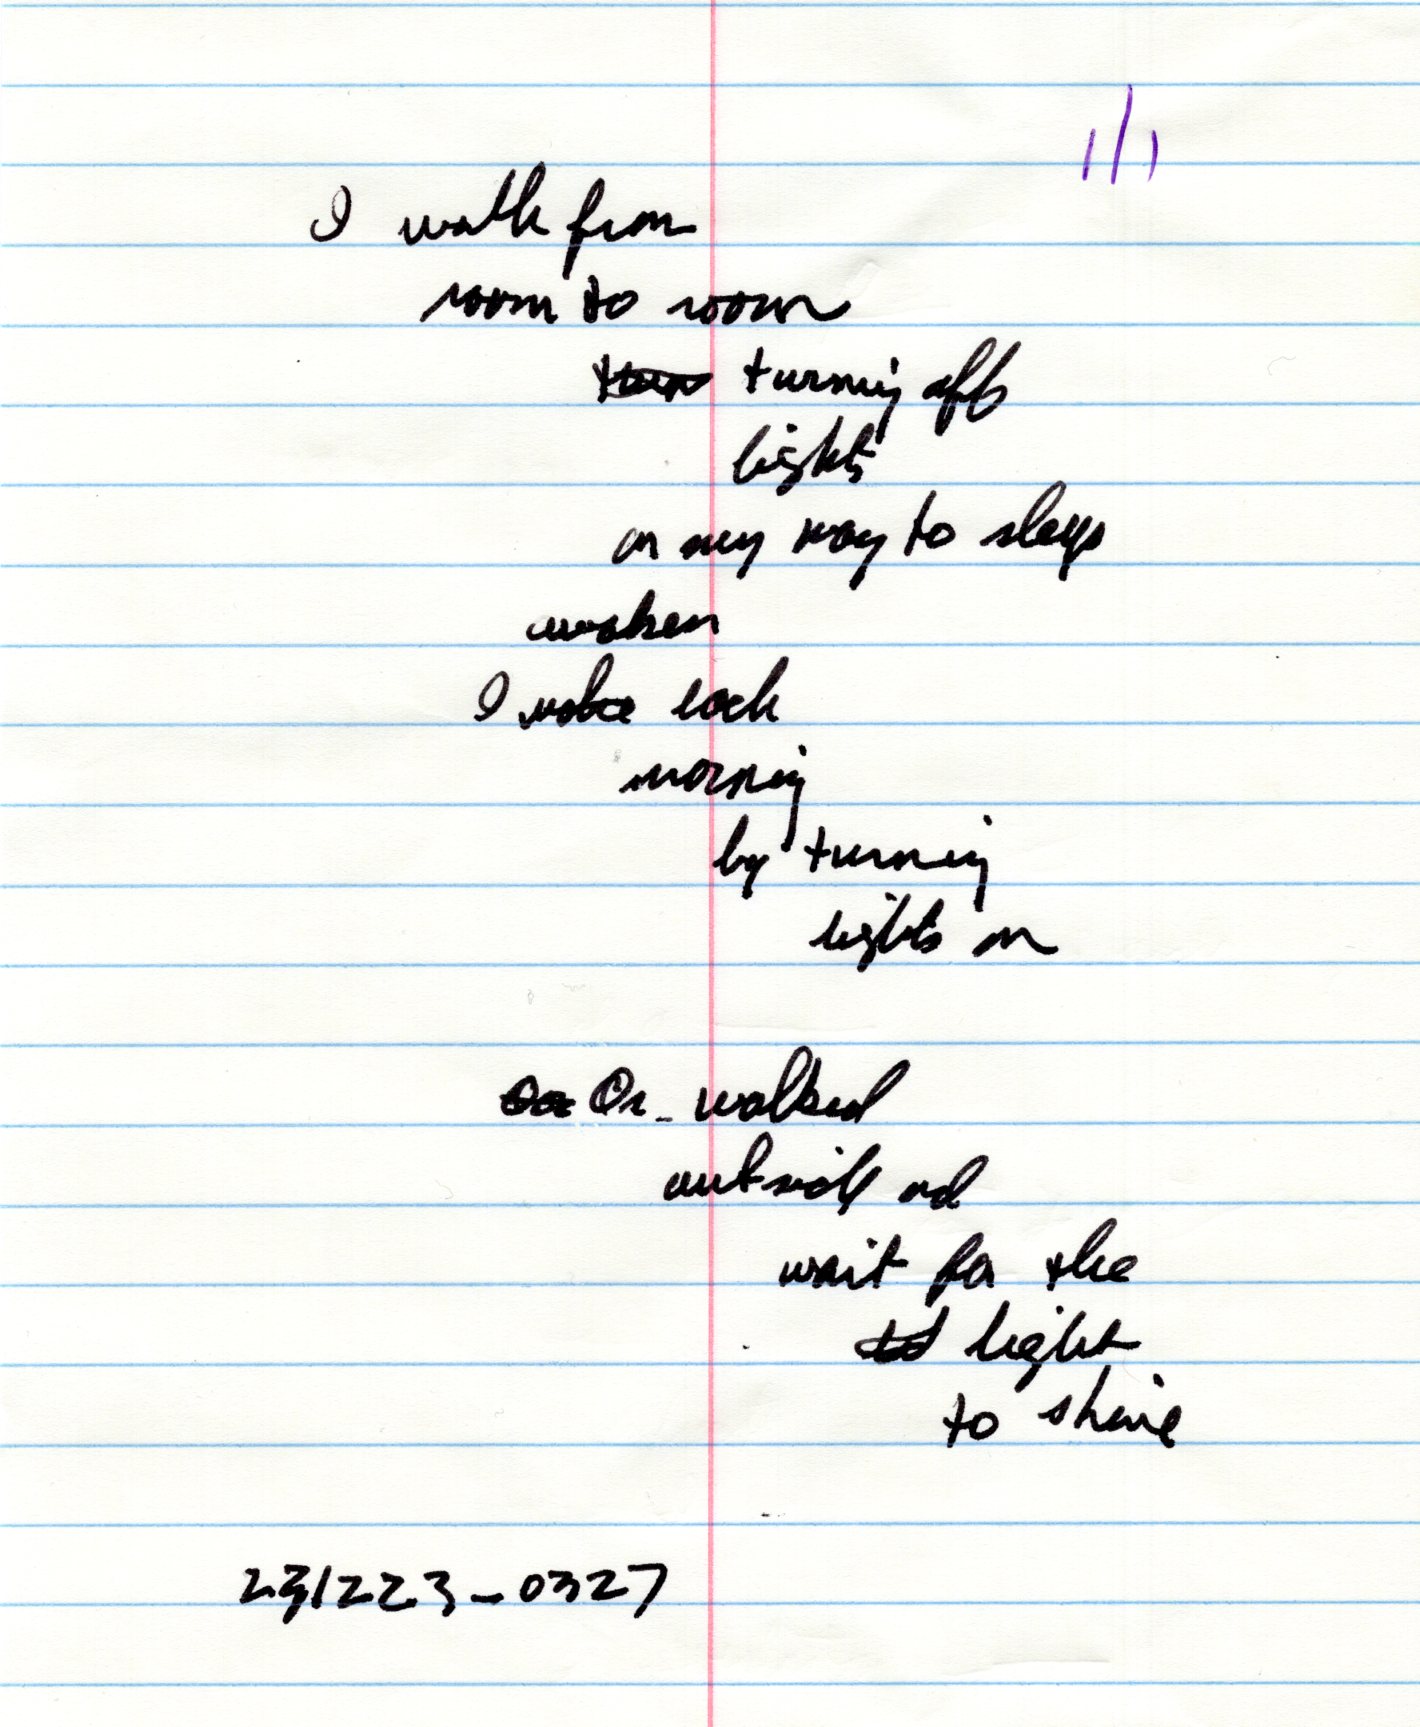 1/1
I walk from
room to room
turning off
lights
on my way to sleep
awaken
I wake each
morning
by turning
lights on
Or walked
outside and
wait for the
light
to shine
231223-0327